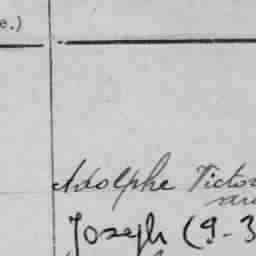 e.)
Adolphe Victo
Joseph (9-3